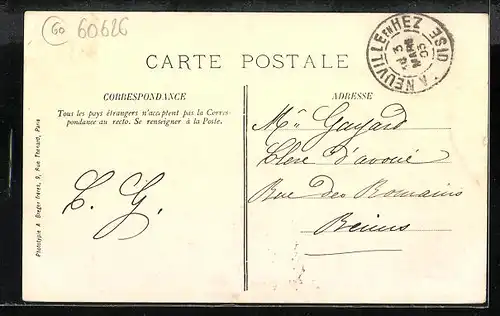 60 60626
LA NEUVILLE EN HEZ OISE
3
MARS
05
CARTE POSTALE
CORRESPONDANCE
Tous les pays étrangers n'acceptent pas la Corres-
pondance au recto. Se renseigner à la Poste.
Phototypie A. Breger frères, 9, Rue Thénard, Paris
ADRESSE
Mr Gayard
Clerc d'avoué
Rue des Romains
Reims